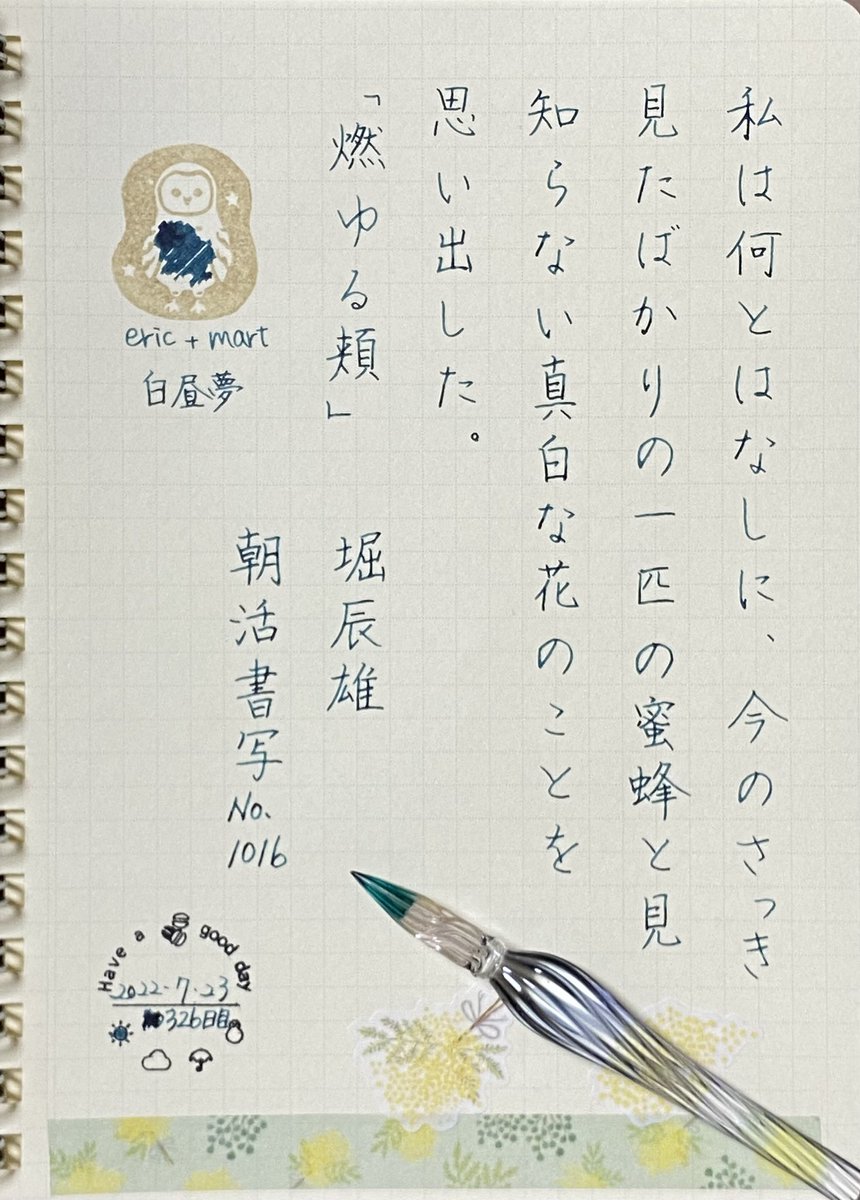 私は何とはなしに、今のさっき
見たばかりの一匹の蜜蜂と見
知らない真白な花のことを
思い出した。
「燃ゆる頬」
堀辰雄
朝活書写
No.
1016
eric + mart
白昼夢
Have a good day
2022.7.23
326日目